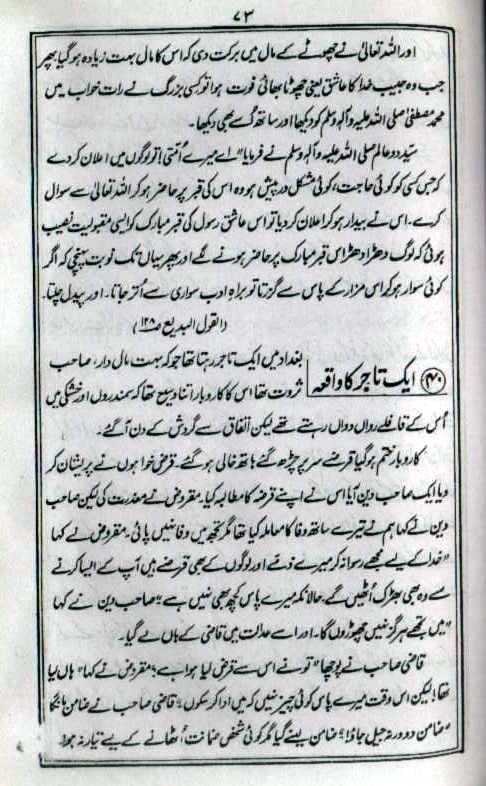 ۷۳
اور اللہ تعالیٰ نے چھوٹے کے مال میں برکت دی کہ اس کا مال بہت زیادہ ہو گیا پھر
جب وہ حبیب خدا کا عاشق یعنی چھوٹا بھائی فوت ہوا تو کسی بزرگ نے رات خواب میں
محمد مصطفیٰ صلی اللہ علیہ وآلہ وسلم کو دیکھا اور ساتھ اُسے بھی دیکھا۔
سیّد دو عالم صلی اللہ علیہ وآلہ وسلم نے فرمایا "اے میرے اُمتی! تو لوگوں میں اعلان کر دے
کہ جس کسی کو کوئی حاجت، کوئی مشکل درپیش ہو وہ اس کی قبر پر حاضر ہو کر اللہ تعالیٰ سے سوال
کرے۔ اس نے بیدار ہو کر اعلان کر دیا تو اس عاشق رسول کی قبر مبارک کو ایسی مقبولیت نصیب
ہوئی کہ لوگ دھڑا دھڑ اس قبر مبارک پر حاضر ہونے لگے اور پھر یہاں تک نوبت پہنچی کہ اگر
کوئی سوار ہو کر اس مزار کے پاس سے گزرتا تو براہِ ادب سواری سے اُتر جاتا۔ اور پیدل چلتا۔
(القول البدیع ص۱۲۸)
۴۰ ایک تاجر کا واقعہ
بغداد میں ایک تاجر رہتا تھا جو کہ بہت مال دار، صاحب
ثروت تھا اس کا کاروبار اتنا وسیع تھا کہ سمندروں اور خشکی میں
اُس کے قافلے رواں دواں رہتے تھے لیکن اتفاق سے گردش کے دن آ گئے۔
کاروبار ختم ہو گیا قرضے سر پر چڑھ گئے ہاتھ خالی ہو گئے۔ قرض خواہوں نے پریشان کر
دیا ایک صاحب دین آیا اس نے اپنے قرضہ کا مطالبہ کیا۔ مقروض نے معذرت کی لیکن صاحب
دین نے کہا ہم نے تیرے ساتھ وفا کا معاملہ کیا تھا مگر تجھ میں وفا نہیں پائی۔ مقروض نے کہا
"خدا کے لیے مجھے رسوا نہ کر میرے ذمّے اور لوگوں کے بھی قرضے ہیں آپ کے ایسا کرنے
سے وہ بھی بھڑک اُٹھیں گے۔ حالانکہ میرے پاس کچھ بھی نہیں ہے" صاحب دین نے کہا
"میں تجھے ہرگز نہیں چھوڑوں گا۔ اور اسے عدالت میں قاضی کے ہاں لے گیا۔
قاضی صاحب نے پوچھا "تو نے اس سے قرض لیا ہوا ہے؟ مقروض نے کہا "ہاں لیا
تھا! لیکن اس وقت میرے پاس کوئی چیز نہیں کہ میں ادا کر سکوں" قاضی صاحب نے ضامن مانگا
"ضامن دو ورنہ جیل جاؤ!" ضامن لینے گیا مگر کوئی شخص ضمانت اُٹھانے کے لیے تیار نہ ہوا